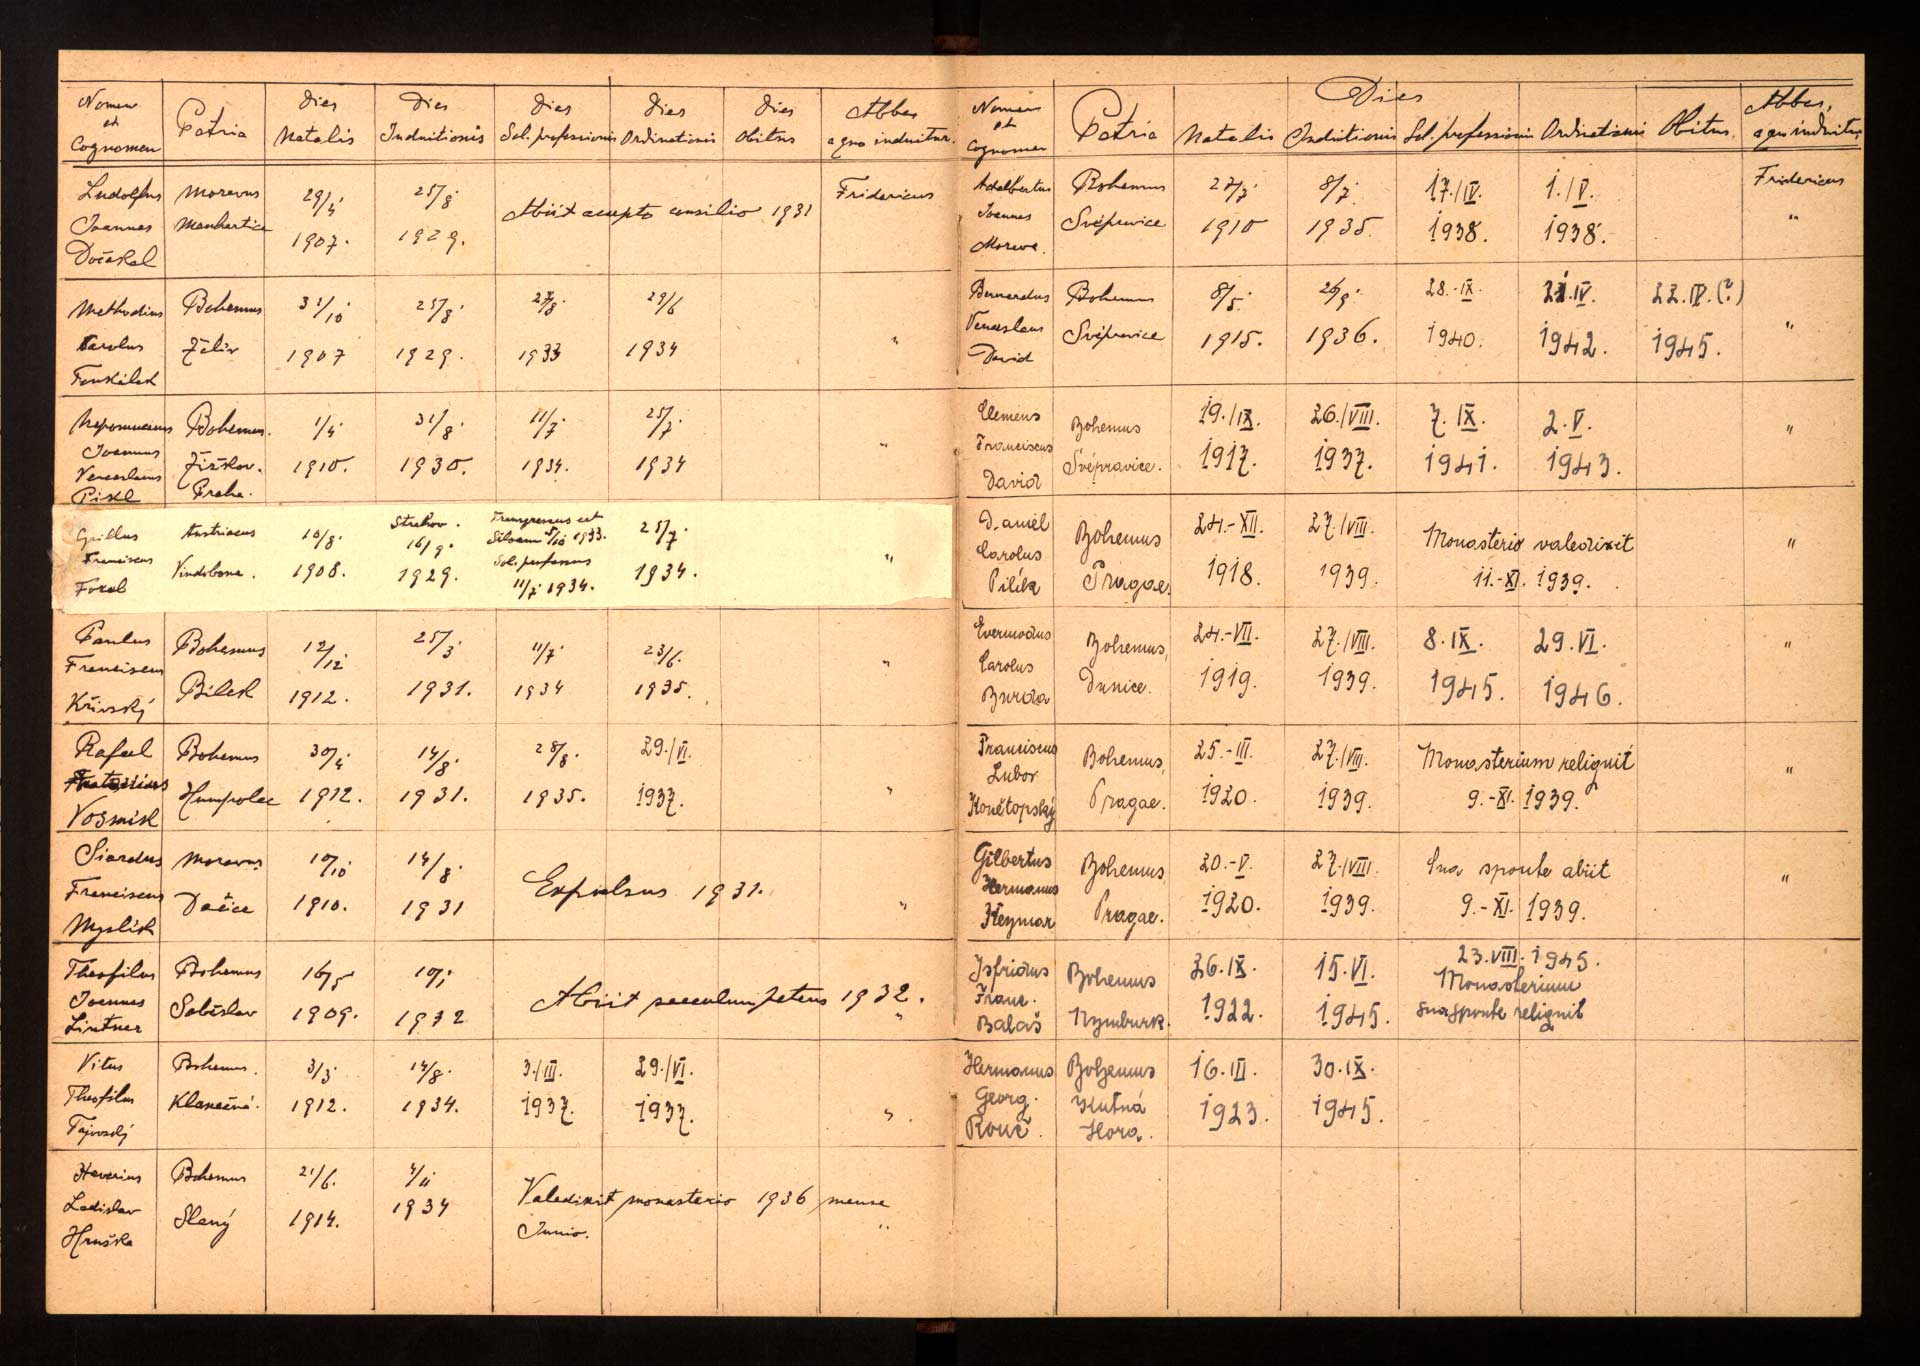 Nomen et Cognomen
Patria
Dies Natalis
Dies Induitionis
Dies Sol. professionis
Dies Ordinationis
Dies Obitus
Abbas a quo induitur.
Ludolfus Moravus 29/4 25/8 Fridericus
Joannes
1907. 1929. Abiit accepto consilio 1931
Dočekal
Methodius Bohemus 31/10 25/8 27/8 29/6
Karolus Želiv 1907 1929. 1933 1934 "
Nepomucenus Bohemus. 1/4 31/8 11/7 25/7
Joannes
Venceslaus Žižkov. 1910. 1930. 1934. 1934 "
Pikl Praha.
Austriacus 10/8. Strahov. Transgressus est 25/7
Franciscus 16/9. Siloam 5/10 1933.
Vindobona. 1908. 1929. Sol. professus 1934. "
11/7 1934.
Paulus Bohemus 12/12 25/3 11/7 23/6.
Franciscus Bílek 1912. 1931. 1934 1935. "
Křivský
Rafael Bohemus 30/4 14/8 28/8. 29./VI.
Humpolec 1912. 1931. 1935. 1937. "
Vosmík
Siardus Moravus 10/10 14/8.
Franciscus Dačice 1910. 1931 Expulsus 1931. "
Myslík
Theofilus Bohemus 16/5 10/1
Joannes Soběslav 1909. 1932 Abiit saeculum petens 1932. "
Lintner
Vitus Bohemus. 3/3 14/8. 3./III. 29./VI.
Theofilus Klanečná. 1912. 1934. 1937. 1937. "
Tajovský
Bohemus 21/6. 4/11
Ladislav Slaný 1914. 1934 Valedixit monasterio 1936 mense
Hruška Junio. "
Nomen et Cognomen
Patria
Dies
Natalis
Induitionis
Sol. professionis
Ordinationis
Obitus.
Abbas, a quo induitur
Adalbertus Bohemus 27/7 8/7. 17./IV. 1./V. Fridericus
Joannes Svépravice 1910 1935. 1938. 1938. "
Morava.
Bernardus Bohemus 8/5. 26/9. 28.-IX. IV. 22.IV.(?)
Venceslaus Svépravice 1915. 1936. 1940. 1942. 1945. "
David
Clemens Bohemus 19./IX. 26./VIII. 7. IX. 2.V.
Franciscus Svépravice. 1917. 1937. 1941. 1943. "
David
Daniel Bohemus 24.-XII. 27./VIII. Monasterio valedixit
Carolus Pragae. 1918. 1939. 11.-XI. 1939. "
Pilík
Evermodus Bohemus, 24.-VII. 27./VIII. 8.IX. 29.VI.
Carolus Dunice. 1919. 1939. 1945. 1946. "
Burda
Franciscus Bohemus, 25.-III. 27./VIII. Monasterium reliquit
Lubor Pragae. 1920. 1939. 9.-XI. 1939. "
Konětopský
Gilbertus Bohemus, 20.-V. 27./VIII. Sua sponte abiit
Hermanus Pragae. 1920. 1939. 9.-XI. 1939. "
Heymar
Isfridus Bohemus 26.IX. 15.VI. 23.VIII.1945.
Franc. Monasterium
Balaš Nymburk. 1922. 1945. sua sponte reliquit
Hermanus Bohemus 16.III. 30.IX.
Georg. Kutná 1923. 1945.
Rouč. Hora.